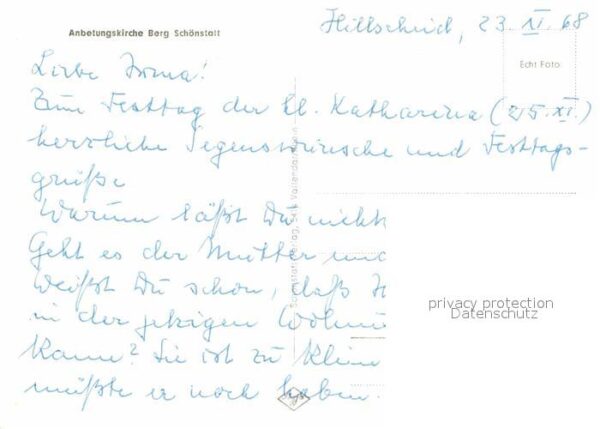 Anbetungskirche Berg Schönstatt
Hillscheid, 23. XI. 68
Echt Foto
Liebe Irma!
Zum Festtag der hl. Katharina (25. XI.)
herzliche Segenswünsche und Festtags-
grüße
Warum läßt Du nichts
Geht es der Mutter und
Weißt Du schon, daß
in der jetzigen Wohnu
kann? Sie ist zu klein
müßte er noch haben.
Schönstatt-Verlag, 5414 Vallendar
privacy protection
Datenschutz